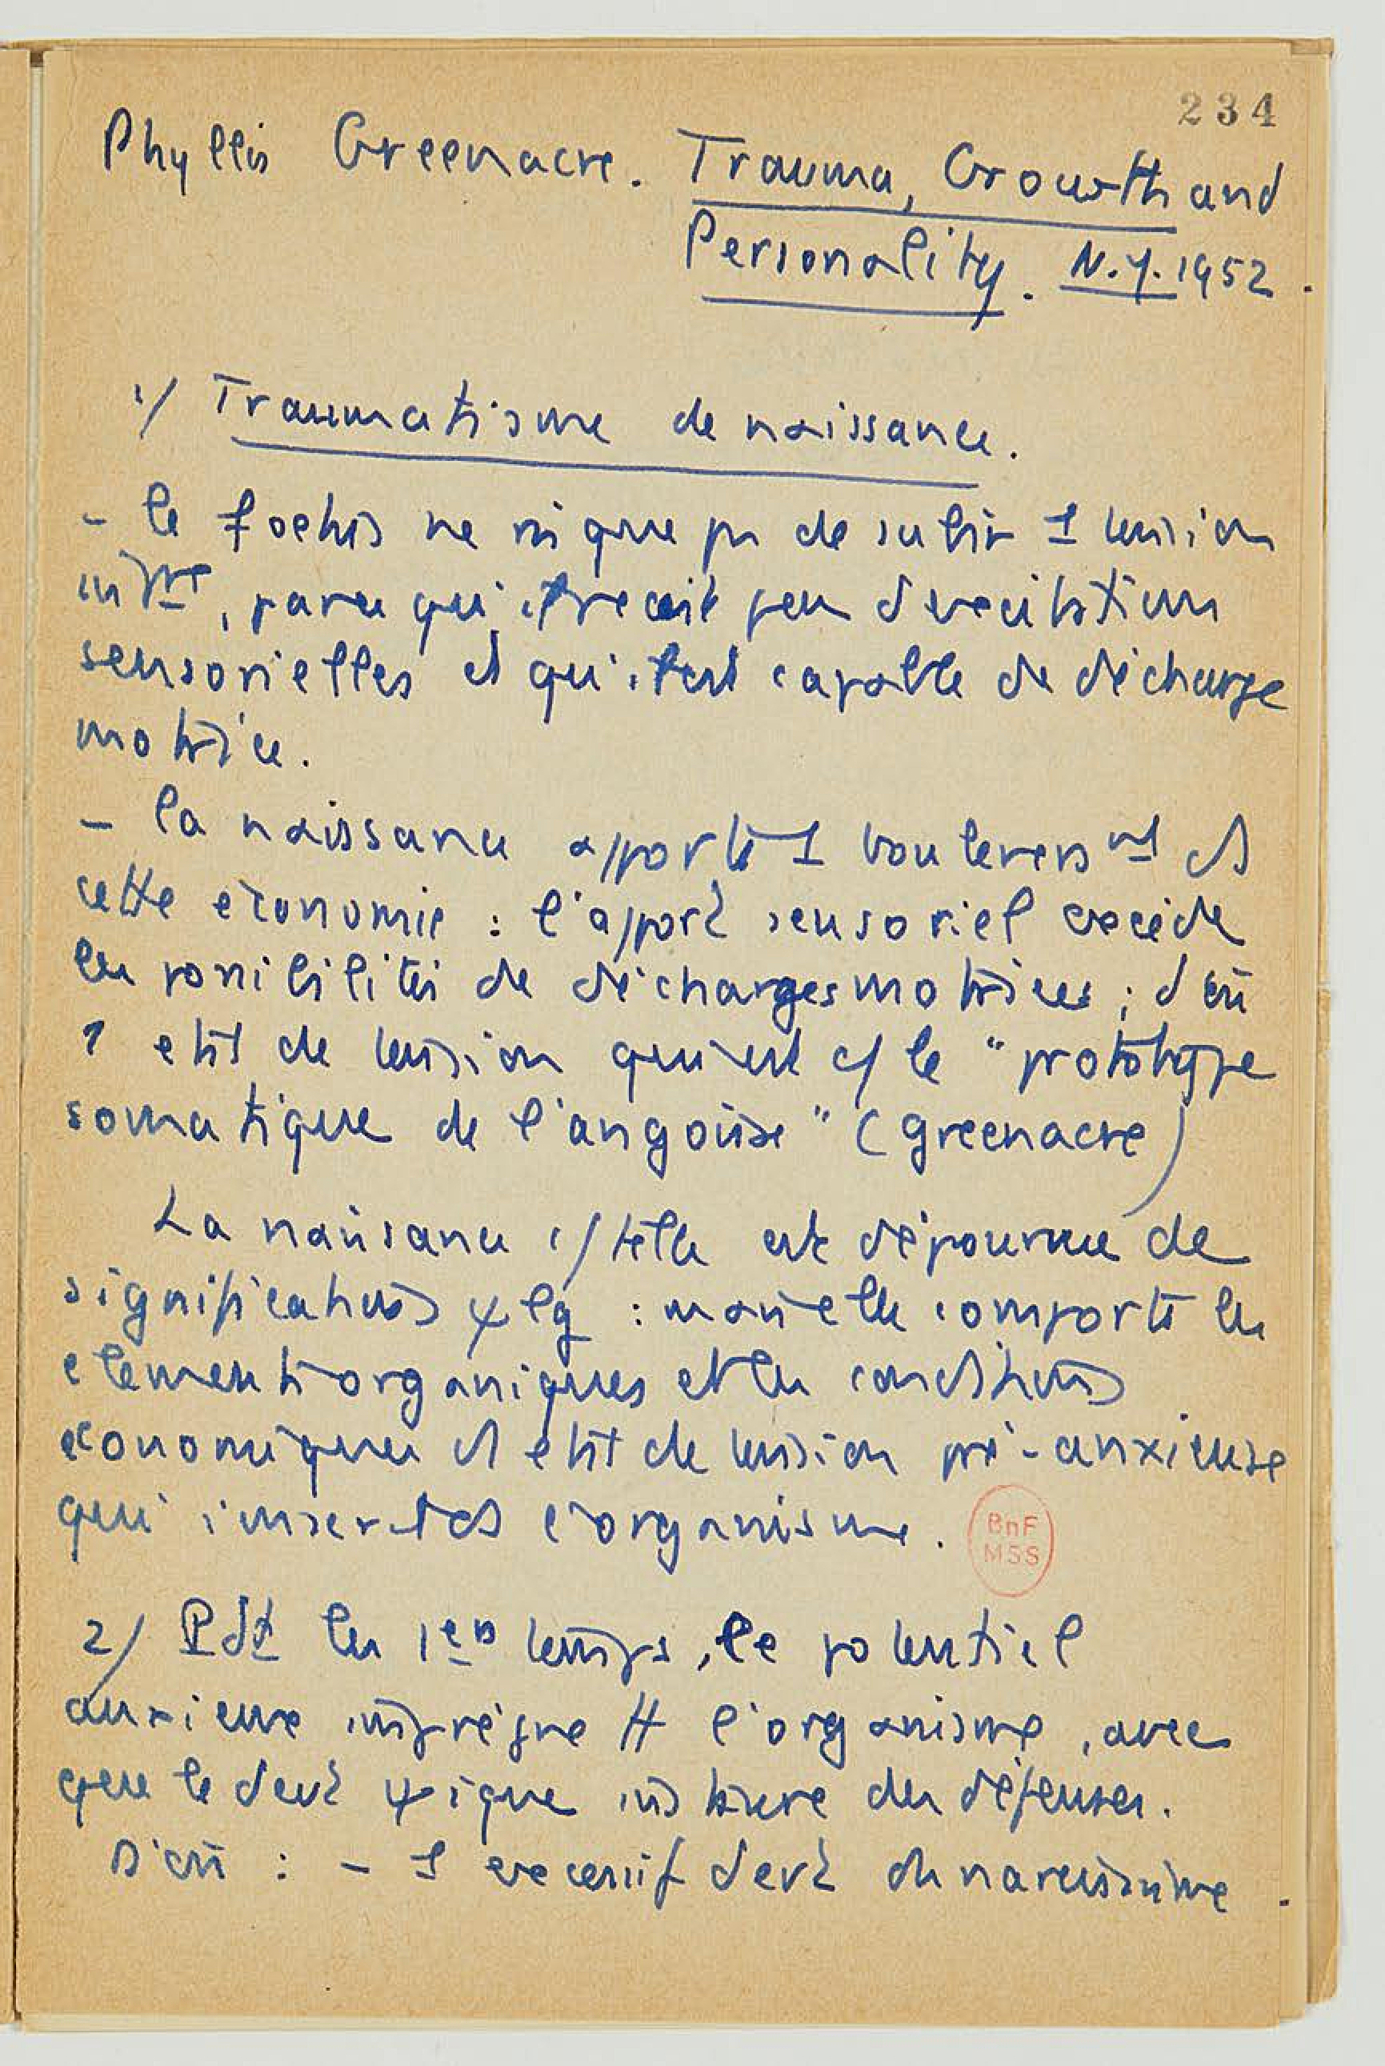 234
Phyllis Greenacre. Trauma, Growth and
Personality. N.Y. 1952.
1/ Traumatisme de naissance.
- le foetus ne risque pas de subir 1 tension
, parce qu'il reçoit peu d'excitations
sensorielles et qu'il est capable de décharge
motrice.
- la naissance apporte 1 boulevers mt ds
cette économie : l'apport sensoriel excède
les possibilités de décharges motrices ; d'où
1 état de tension qui est c/ le "prototype
somatique de l'angoisse" (Greenacre)
La naissance c/ telle est dépourvue de
significations ψ lg : mais elle comporte les
elements organiques et les conditions
economiques d'1 etat de tension pré-anxieuse
qui l'organisme.
2/ Pdt les 1ers temps, le potentiel
anxieux imprègne tt l'organisme, avec
que le devt ψ ique instaure des défenses.
D'où : - 1 excessif devt du narcissisme.
BnF
MSS